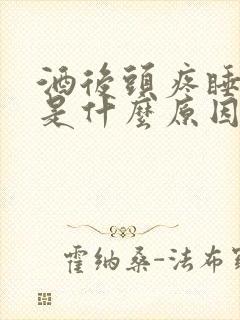 酒後頭疼睡
是什麼原因
霍纳桑-法布